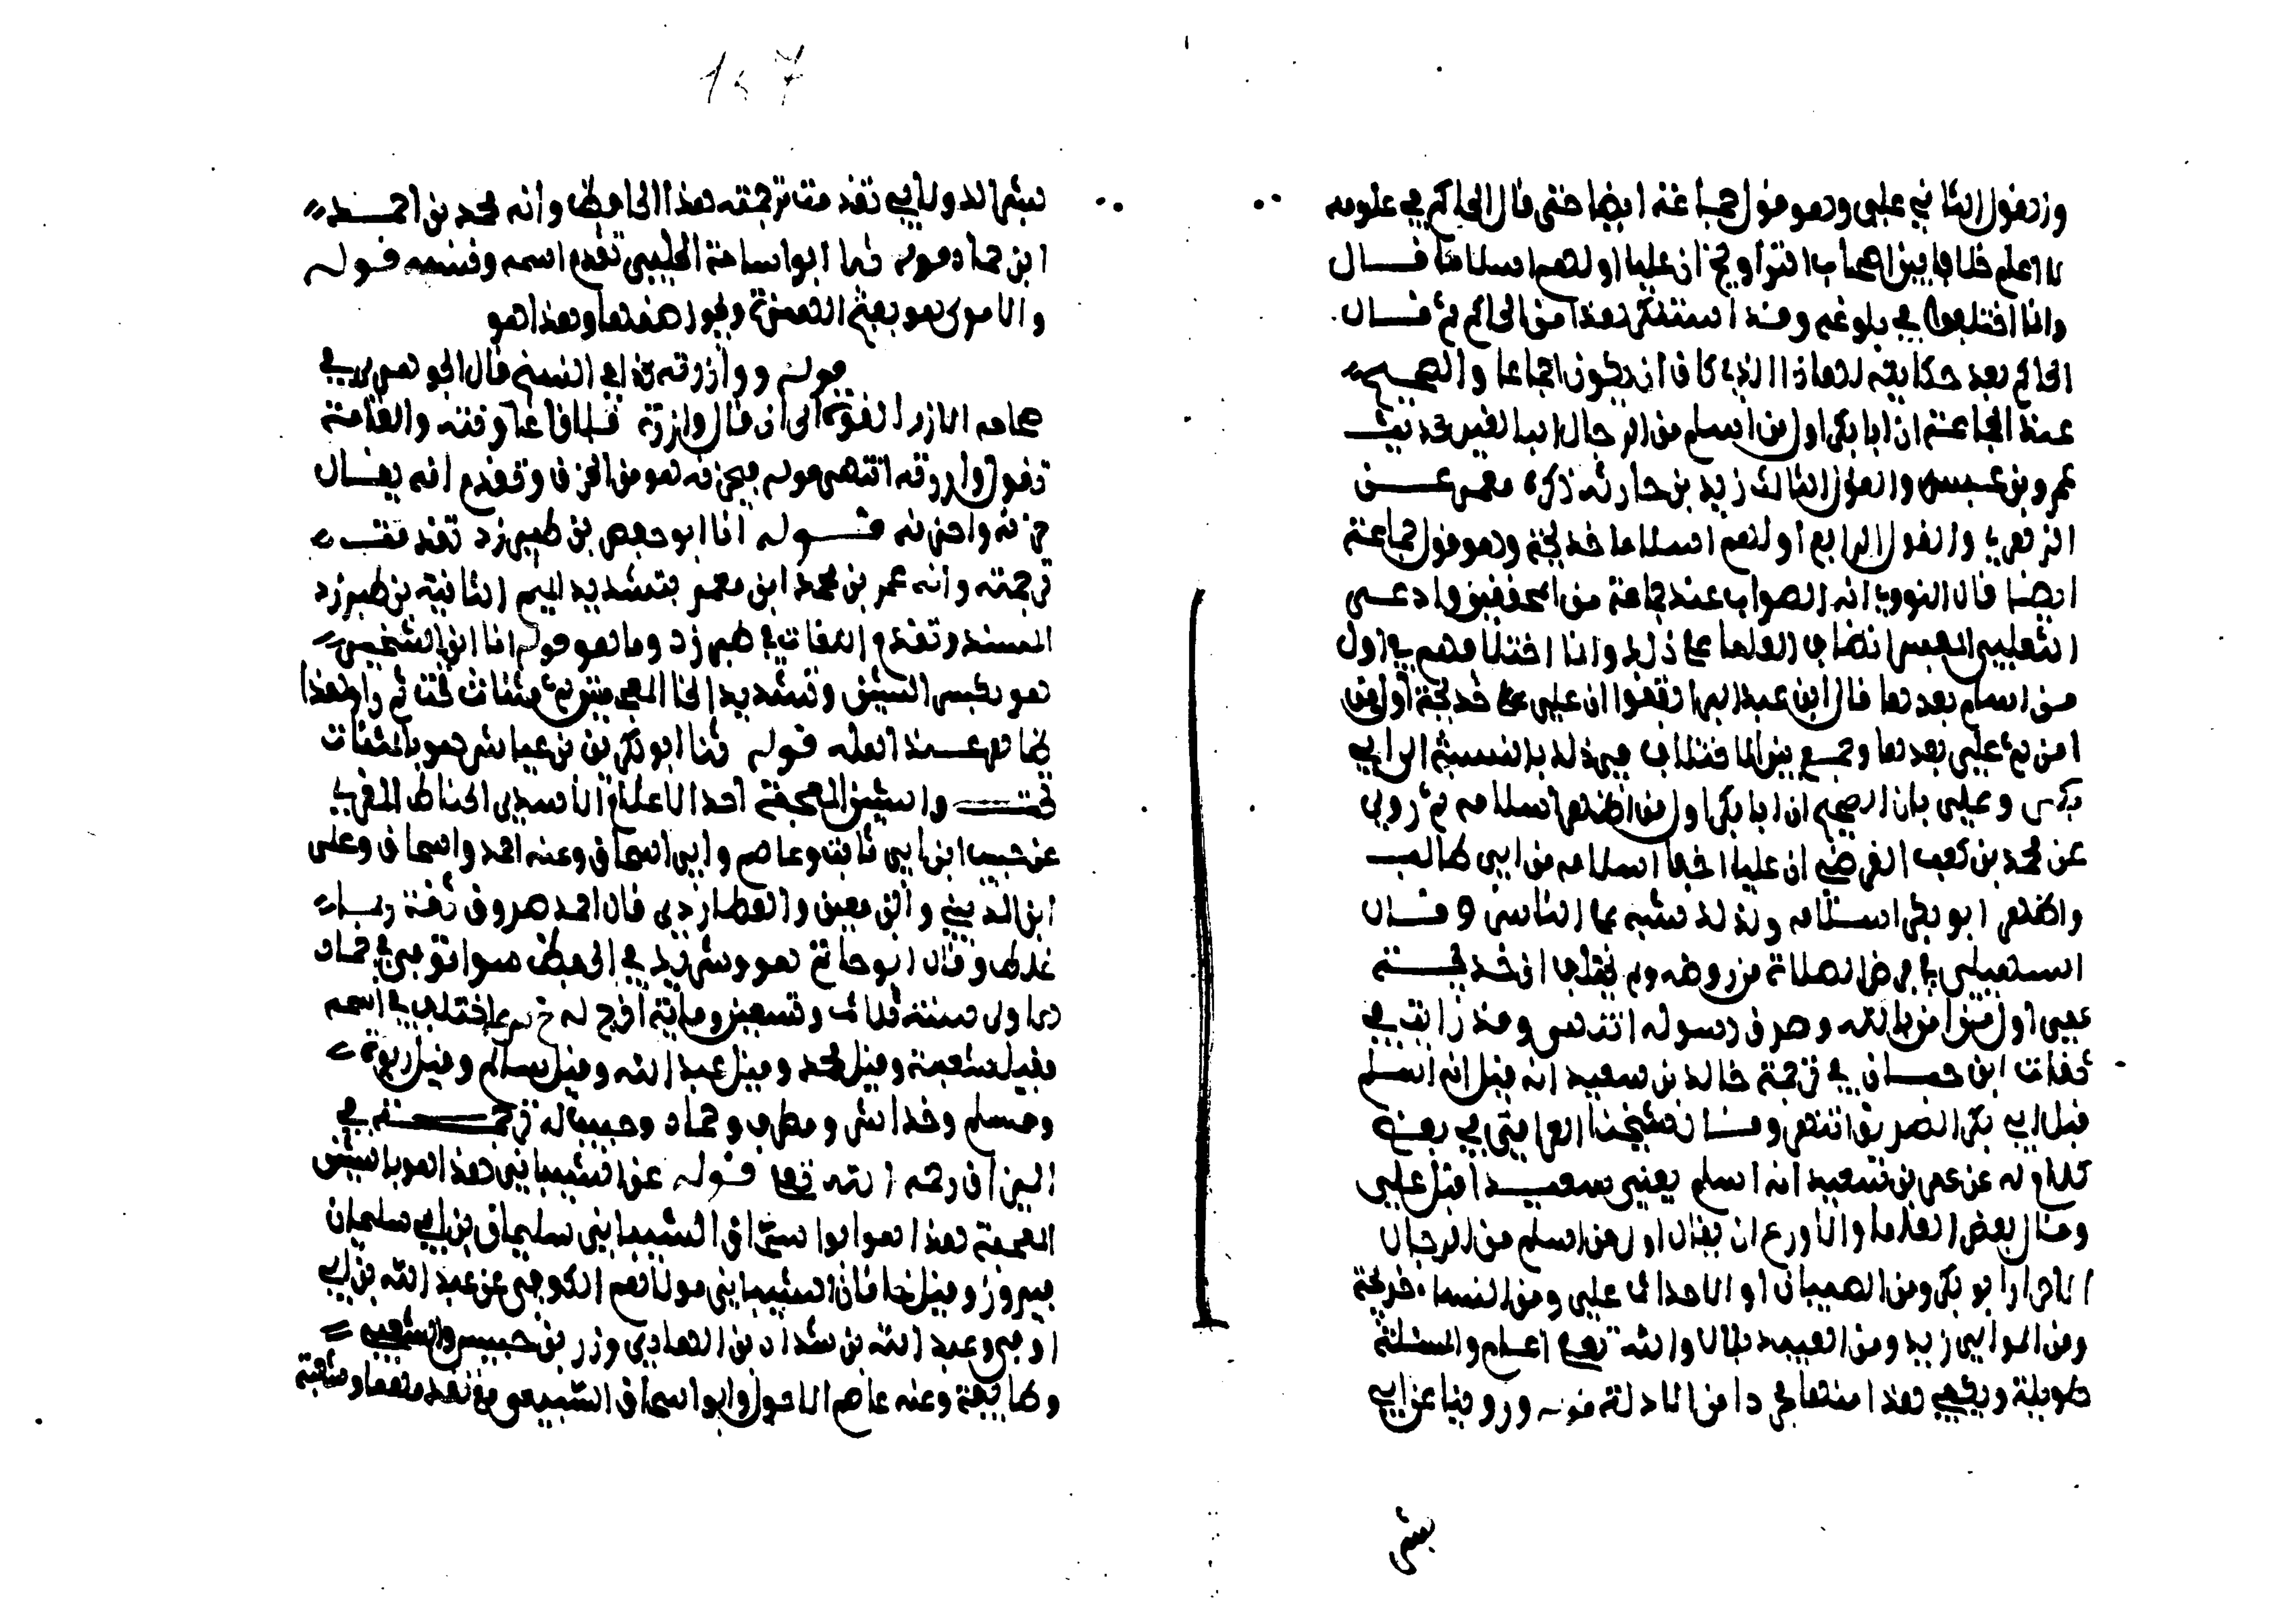 والقول الثاني علي وهو قول جماعة ايضا حتى قال الحاكم في علومه
لا اعلم خلافا بين اصحاب التواريخ ان عليا اولهم اسلاما قال
وانما اختلفوا في بلوغه وقد استنكر هذا من الحاكم ثم قال
الحاكم بعد حكايته لهاذا الذي كاف ان يكون اجماعا والصحيح
عند الجماعة ان ابا بكر اول من اسلم من الرجال البالغين لحديث
عمرو بن عبسة والقول الثالث زيد بن حارثة ذكره معمر عن
الزهري والقول الرابع اولهم اسلاما خديجة وهو قول جماعة
ايضا قال النووي انه الصواب عند جماعة من المحققين وادعى
الثعلبي المفسر اتفاق العلما على ذلك وانما اختلافهم في اول
من اسلم بعدها قال ابن عبد البر اتفقوا ان على خديجة اول من
امن ثم علي بعدها وجمع بين الاختلاف في ذلك بالنسبة الى ابي
بكر وعلي بان الصحيح ان ابا بكر اول من اظهر اسلامه ثم روى
عن محمد بن كعب القرظي ان عليا اخفا اسلامه من ابي طالب
واظهر ابو بكر اسلامه ولذلك شبه على الناس وقال
السهيلي في فرض الصلاة من روضه ولم يختلف ان خديجة
هي اول من امن بالله وصدق رسوله انتهى وقد رايت في
ثقات ابن حبان في ترجمة خالد بن سعيد انه قيل انه اسلم
قبل ابي بكر الصديق انتهى وقال شيخنا العراقي في بعض
كلام له عن عمر بن سعيد انه اسلم يعني سعيد قبل علي
وقال بعض العلما والاورع ان يقال اول من اسلم من الرجال
الاحرار ابو بكر ومن الصبيان او الاحداث علي ومن النساء خديجة
ومن الموالي زيد ومن العبيد بلال والله تعالى اعلم والمسئلة
طويلة ويكفي هذا منها مجردا من الادلة قوله وروينا عن ابي
بشر
بشر الدولابي تقدمت ترجمته هذا الحافظ وانه محمد بن احمد
ابن حماد قوله ثنا ابو اسامة الحلبي تقدم اسمه ونسبه قوله
والاموي هو بضم الهمزة ويجوز فتحها وهذا هو
قوله ووازرته الجوهري في
صحاحه الازر القوة الى ان قال وازرت فلانا عاونته والعامة
تقول وازرته انتهى قوله يحزنه هو من الحزن وتقدم انه يقال
حزنه واحزنه قوله انا ابو حفص بن طبرزد تقدمت
ترجمته وانه عمر بن محمد ابن معمر بتشديد الميم الثانية بن طبرزد
المسند وتقدم اللغات في طبرزد وما هو قوله انا ابن الشخير
هو بكسر الشين وتشديد الخا المعجمتين ثم مثناة تحت ثم را وهذا
ظاهر عند اهله قوله ثنا ابو بكر بن بن عياش هو بالمثناة
تحت والشين المعجمة احد الاعلام الاسدي الحناط المقرئ
عن حبيب ابن ابي ثابت وعاصم وابي اسحاق وعنه احمد واسحاق وعلي
ابن المديني وابن معين والعطاردي قال احمد صدوق ثقة ربما
غلط وقال ابو حاتم هو وشريك في الحفظ سوا توفي في جماد
الاول سنة ثلاث وتسعين ومائة اخرج له اختلف في اسمه
فقيل شعبة وقيل محمد وقيل عبد الله وقيل سالم وقيل روبة
ومسلم وخداش ومطرف وحماد وحبيب له ترجمة في
الميزان رحمه الله تعالى قوله عن الشيباني هذا هو بالشين
المعجمة هذا هو ابو اسحاق الشيباني سليمان بن ابي سليمان
فيروز وقيل خاقان الشيباني مولاهم الكوفي عن عبد الله بن ابي
اوفى وعبد الله بن شداد بن الهادي وزر بن حبيش والشعبي
وطائفة وعنه عاصم الاحول وابو اسحاق السبيعي